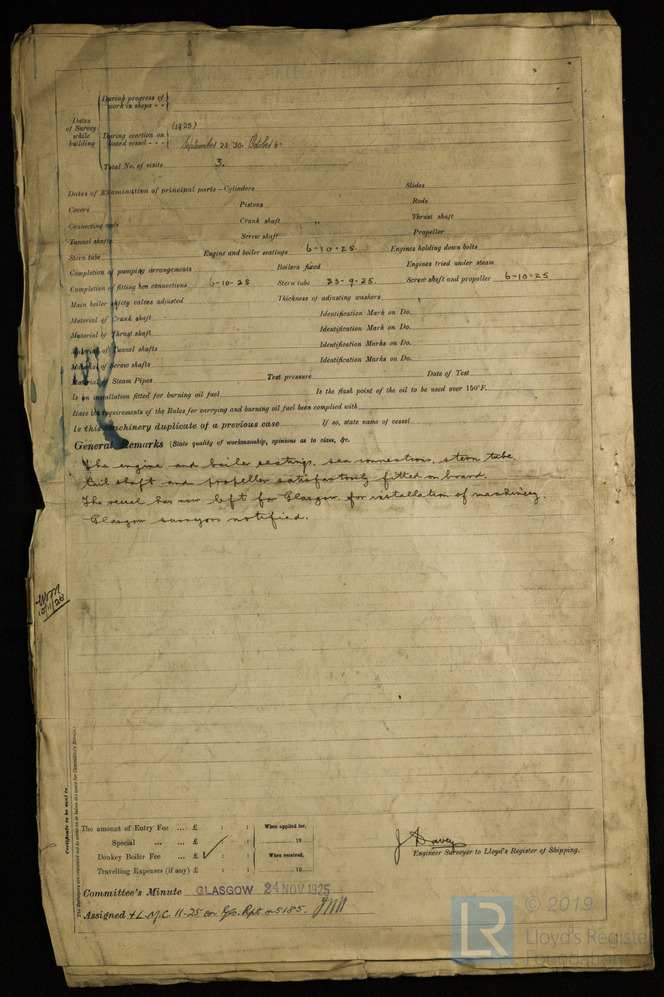 During progress of
work in shops - -
Dates
of Survey
while
building
During erection on
board vessel - - -
(1925)
September 23. 30. October 6.
Total No. of visits 3.
Dates of Examination of principal parts—Cylinders Slides
Covers Pistons Rods
Connecting rods Crank shaft Thrust shaft
Tunnel shafts Screw shaft Propeller
Stern tube Engine and boiler seatings 6-10-25. Engines holding down bolts
Completion of pumping arrangements Boilers fixed Engines tried under steam
Completion of fitting sea connections 6-10-25 Stern tube 23-9-25. Screw shaft and propeller 6-10-25
Main boiler safety valves adjusted Thickness of adjusting washers
Material of Crank shaft Identification Mark on Do.
Material of Thrust shaft Identification Mark on Do.
Material of Tunnel shafts Identification Marks on Do.
Material of Screw shafts Identification Marks on Do.
Material of Steam Pipes Test pressure Date of Test
Is an installation fitted for burning oil fuel Is the flash point of the oil to be used over 150°F.
Have the requirements of the Rules for carrying and burning oil fuel been complied with
Is this machinery duplicate of a previous case If so, state name of vessel
General Remarks (State quality of workmanship, opinions as to class, &c.
The engine and boiler seatings, sea connections, stern tube,
tail shaft and propeller satisfactorily fitted on board.
The vessel has now left for Glasgow, for installation of machinery.
Glasgow surveyors notified.
Certificate to be sent to
The amount of Entry Fee ... £ : : When applied for,
Special ... £ : : 19
Donkey Boiler Fee ... £ : : When received,
Travelling Expenses (if any) £ : : 19
J Davey
Engineer Surveyor to Lloyd's Register of Shipping.
Committee's Minute GLASGOW 24 NOV 1925
Assigned + L.M.C. 11-25 Gls. Rpt.
© 2019
LR
Lloyd's Register
Foundation